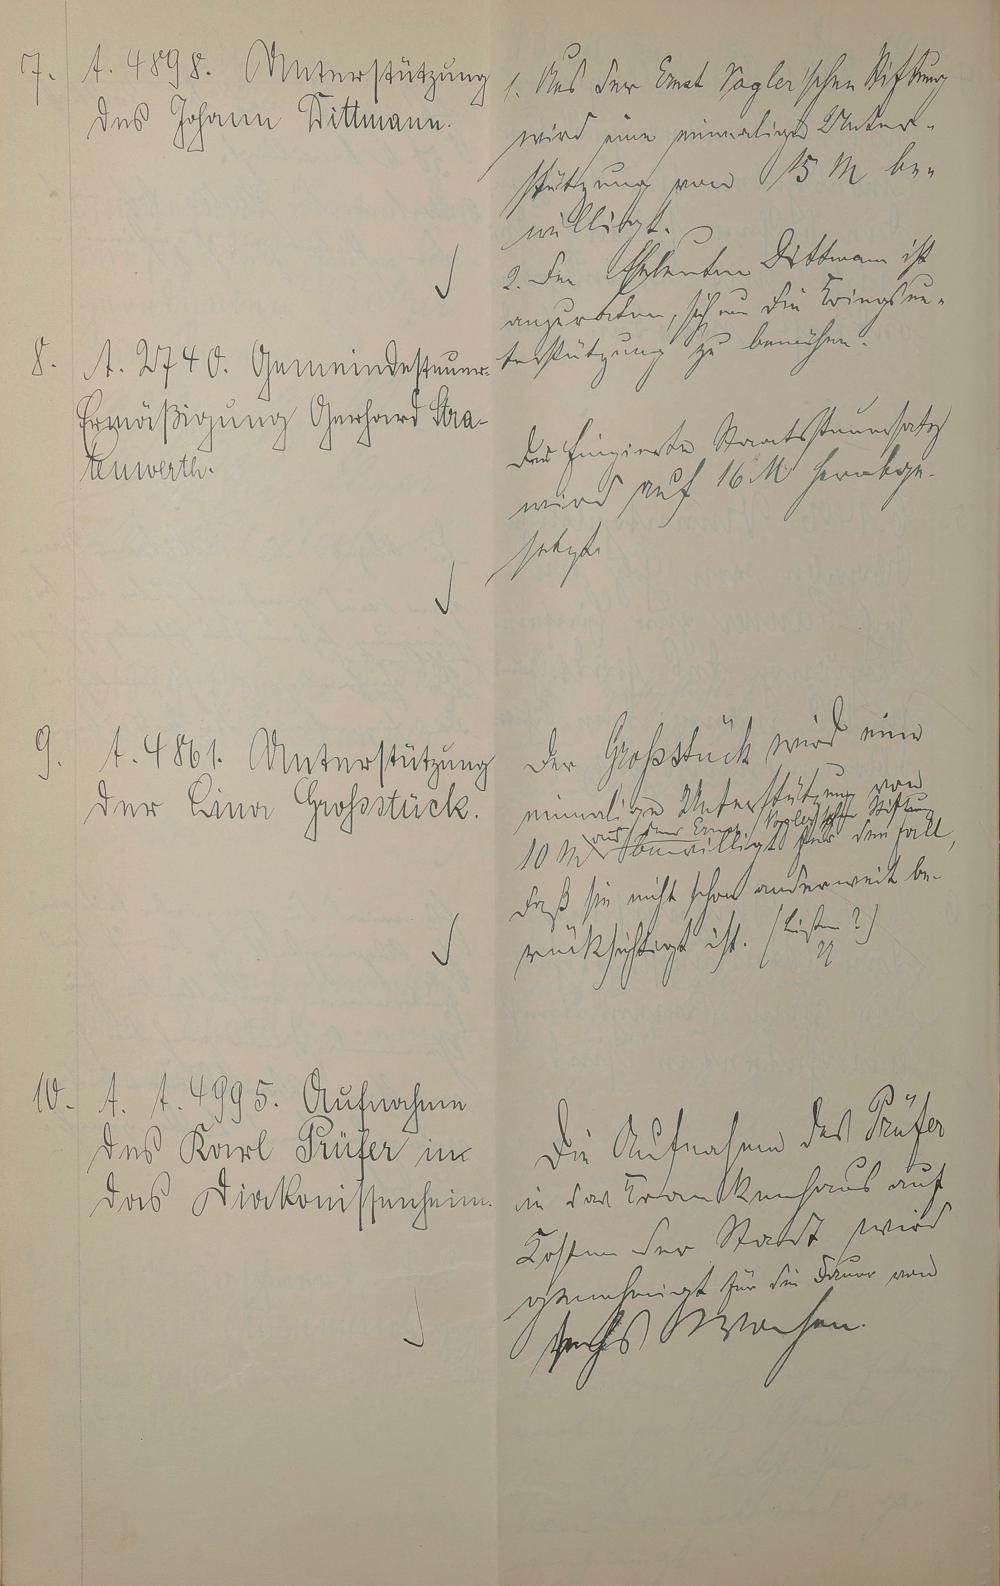 7. A. 4898. Unterstützung
des Johann Dittmann.
1. Aus der Ernst Vogler'schen Stiftung
wird eine einmalige Unter-
stützung von 15 M be-
willigt.
2. Den Eheleuten Dittmann ist
anzuraten, sich um die Kriegsun-
terstützung zu bemühen.
8. A. 2740. Gemeindesteuer-
Ermäßigung Gerhard Stra-
tenwerth.
Der fingierte Staatssteuersatz
wird auf 16 M herabge-
setzt.
9. A. 4861. Unterstützung
der Lina Großstück.
Der Großstück wird eine
einmalige Unterstützung von
aus der Ernst Vogler'schen Stiftung
10 M bewilligt für den Fall,
daß sie nicht schon anderweit be-
rücksichtigt ist. (Listen?)
10. A. A. 4995. Aufnahme
des Karl Prüfer in
das Diakonissenheim.
Die Aufnahme des Prüfer
in das Krankenhaus auf
Kosten der Stadt wird
genehmigt für die Dauer von
sechs Wochen.